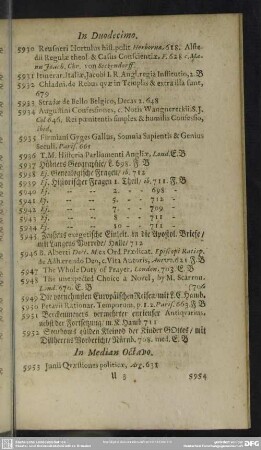 In Duodecimo.
5930 Reusneri Hortulus hist. polit. Herbornæ, 618. Alste-
dii Regulæ theol. & Casus Conscientiæ, F. 628
Joach. Chr. von Seckendorff.
5931 Itinerar. Italiæ, Jacobi I. R. Angl. regia Institutio, 2. B
5932 Chladen. de
in Templis & extra illa sane,
679
5933 Strada de Bello Belgico, Decas 2. 648
5934 Augustini Confessiones, c. Notis Wangnereckii S. J.
Col 646. Rei pœnitentis simplex & humilis Confessio,
ibid,
5935 Firmiani Gyges Gallus, Somnia Sapientis & Genius
Seculi. Paris. 661
5936 T. M. Historia Parliamenti Angliæ, Lond. E. B
5937 Hübners Geographie, L. 698. F. B
5938 Ej. Genealogische Fragen, eb. 712
5939 Ej. Historischer Fragen 1. Theil, eb. 711. F. B
5940 Ej. -- -- 2. - 698 -
5941 Ej. -- -- 5. - 712 -
5942 Ej. -- -- 7. - 709 -
5943 Ej. -- -- 8. - 711 -
5944 Ej. -- -- 10. - 712 -
5945
exegetische Einleit. in die Apostol. Briefe/
mit Langens Vorrede/ Halle/ 712
5946 B. Alberti Doct. Max Ord. Prædicat. Episcopi Ratisp.
de Adhærendo Deo, c. Vita Auctoris, Antverp. 621. F. B
5947 The Whole Duty of Prayer, London, 703. E. B
5948 The unexpected Choice a Novel, by M. Scarron.
Lond. 670. E. B [706
5949 Die vornehmsten Europäischen Reisen/ mit L. C. Hamb.
5950 Petavii Rationar. Temporum, p. 1. 2. Paris. 663. F. B
5951 Berckenmeyers vermehrter curieuser Antiquarius,
mit der Fortsetzung/ m. K. Hamb 711
5952
der Kinder Gottes/ mit
Dillherrns Vorbericht/ Nürnb. 703. med. E. B
In Median Octavo.
5953 Junii Quæstiones politicæ, Arg. 631
U 5
5954